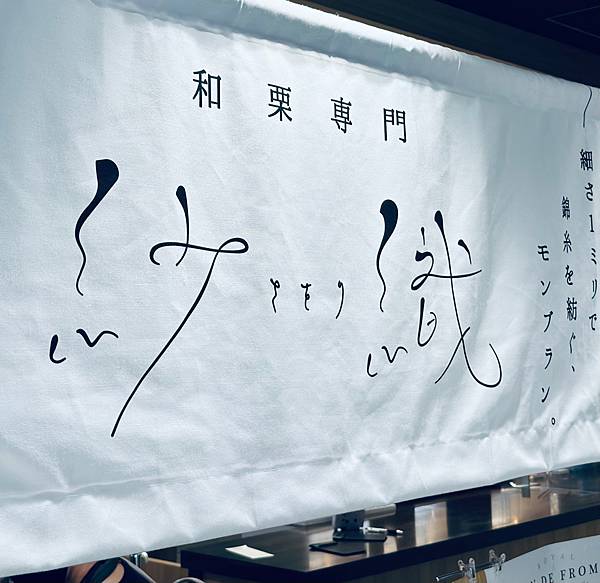 和栗専門
紗織
さをり
〜細さ1ミリで
錦糸を紡ぐ、
モンブラン。
DE FROM